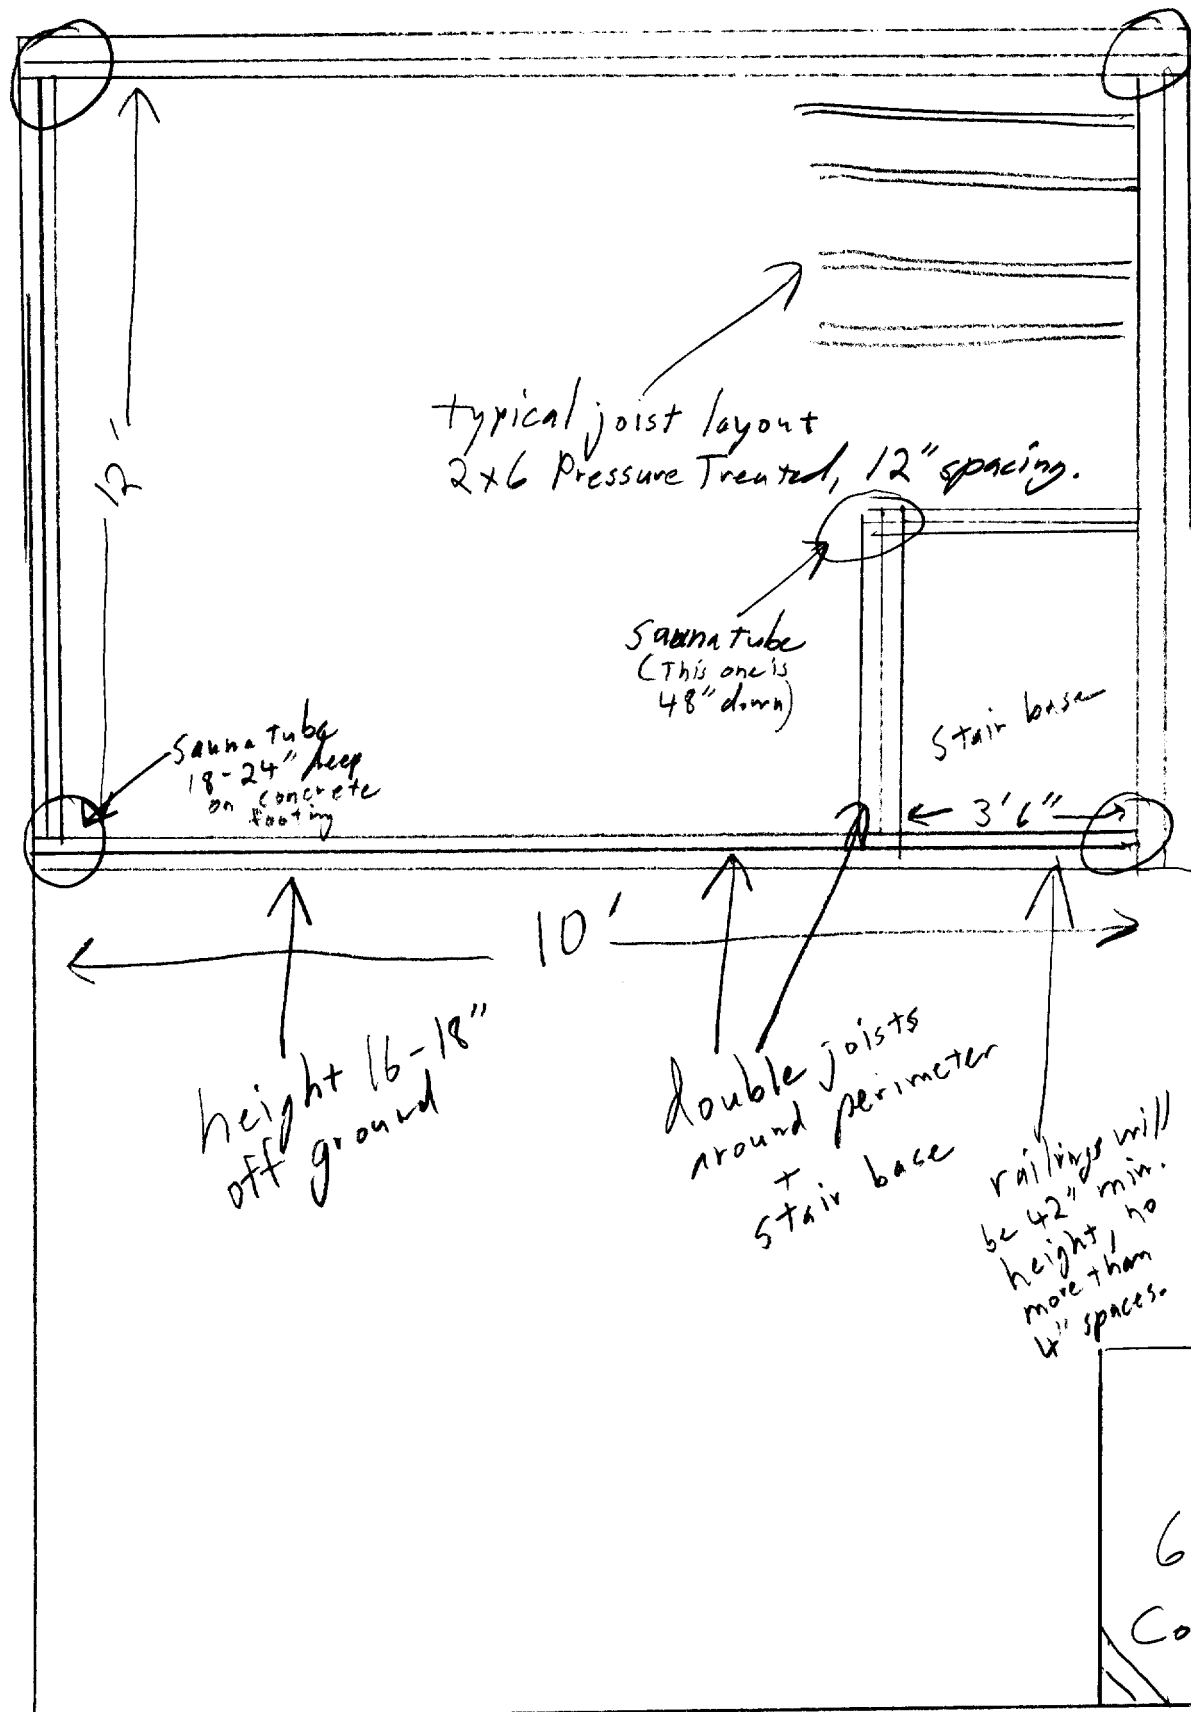 12'
typical joist layout
2x6 Pressure Treated, 12" spacing.
Sauna tube
(This one is
48" down)
Stair base
Sauna tube
18-24" deep
on concrete
footing
3'6"
10'
height 16-18"
off ground
double joists
around perimeter
+
stair base
railings will
be 42" min.
height, no
more than
4" spaces.
6
Co